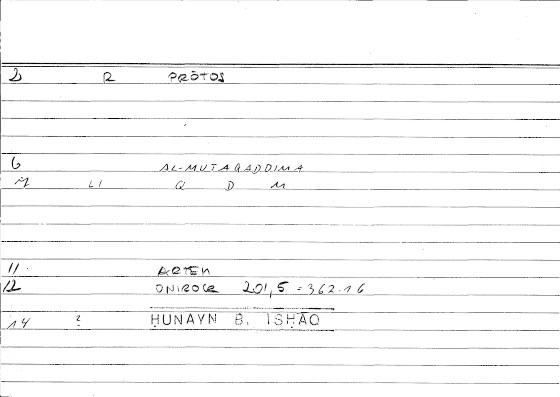 2 R PRŌTOS
6 AL-MUTAQADDIMA
M LI Q D M
11. ARTEM
12 ONIROCR 201,5 = 362.16
14 ? ḤUNAYN B. ISḤĀQ